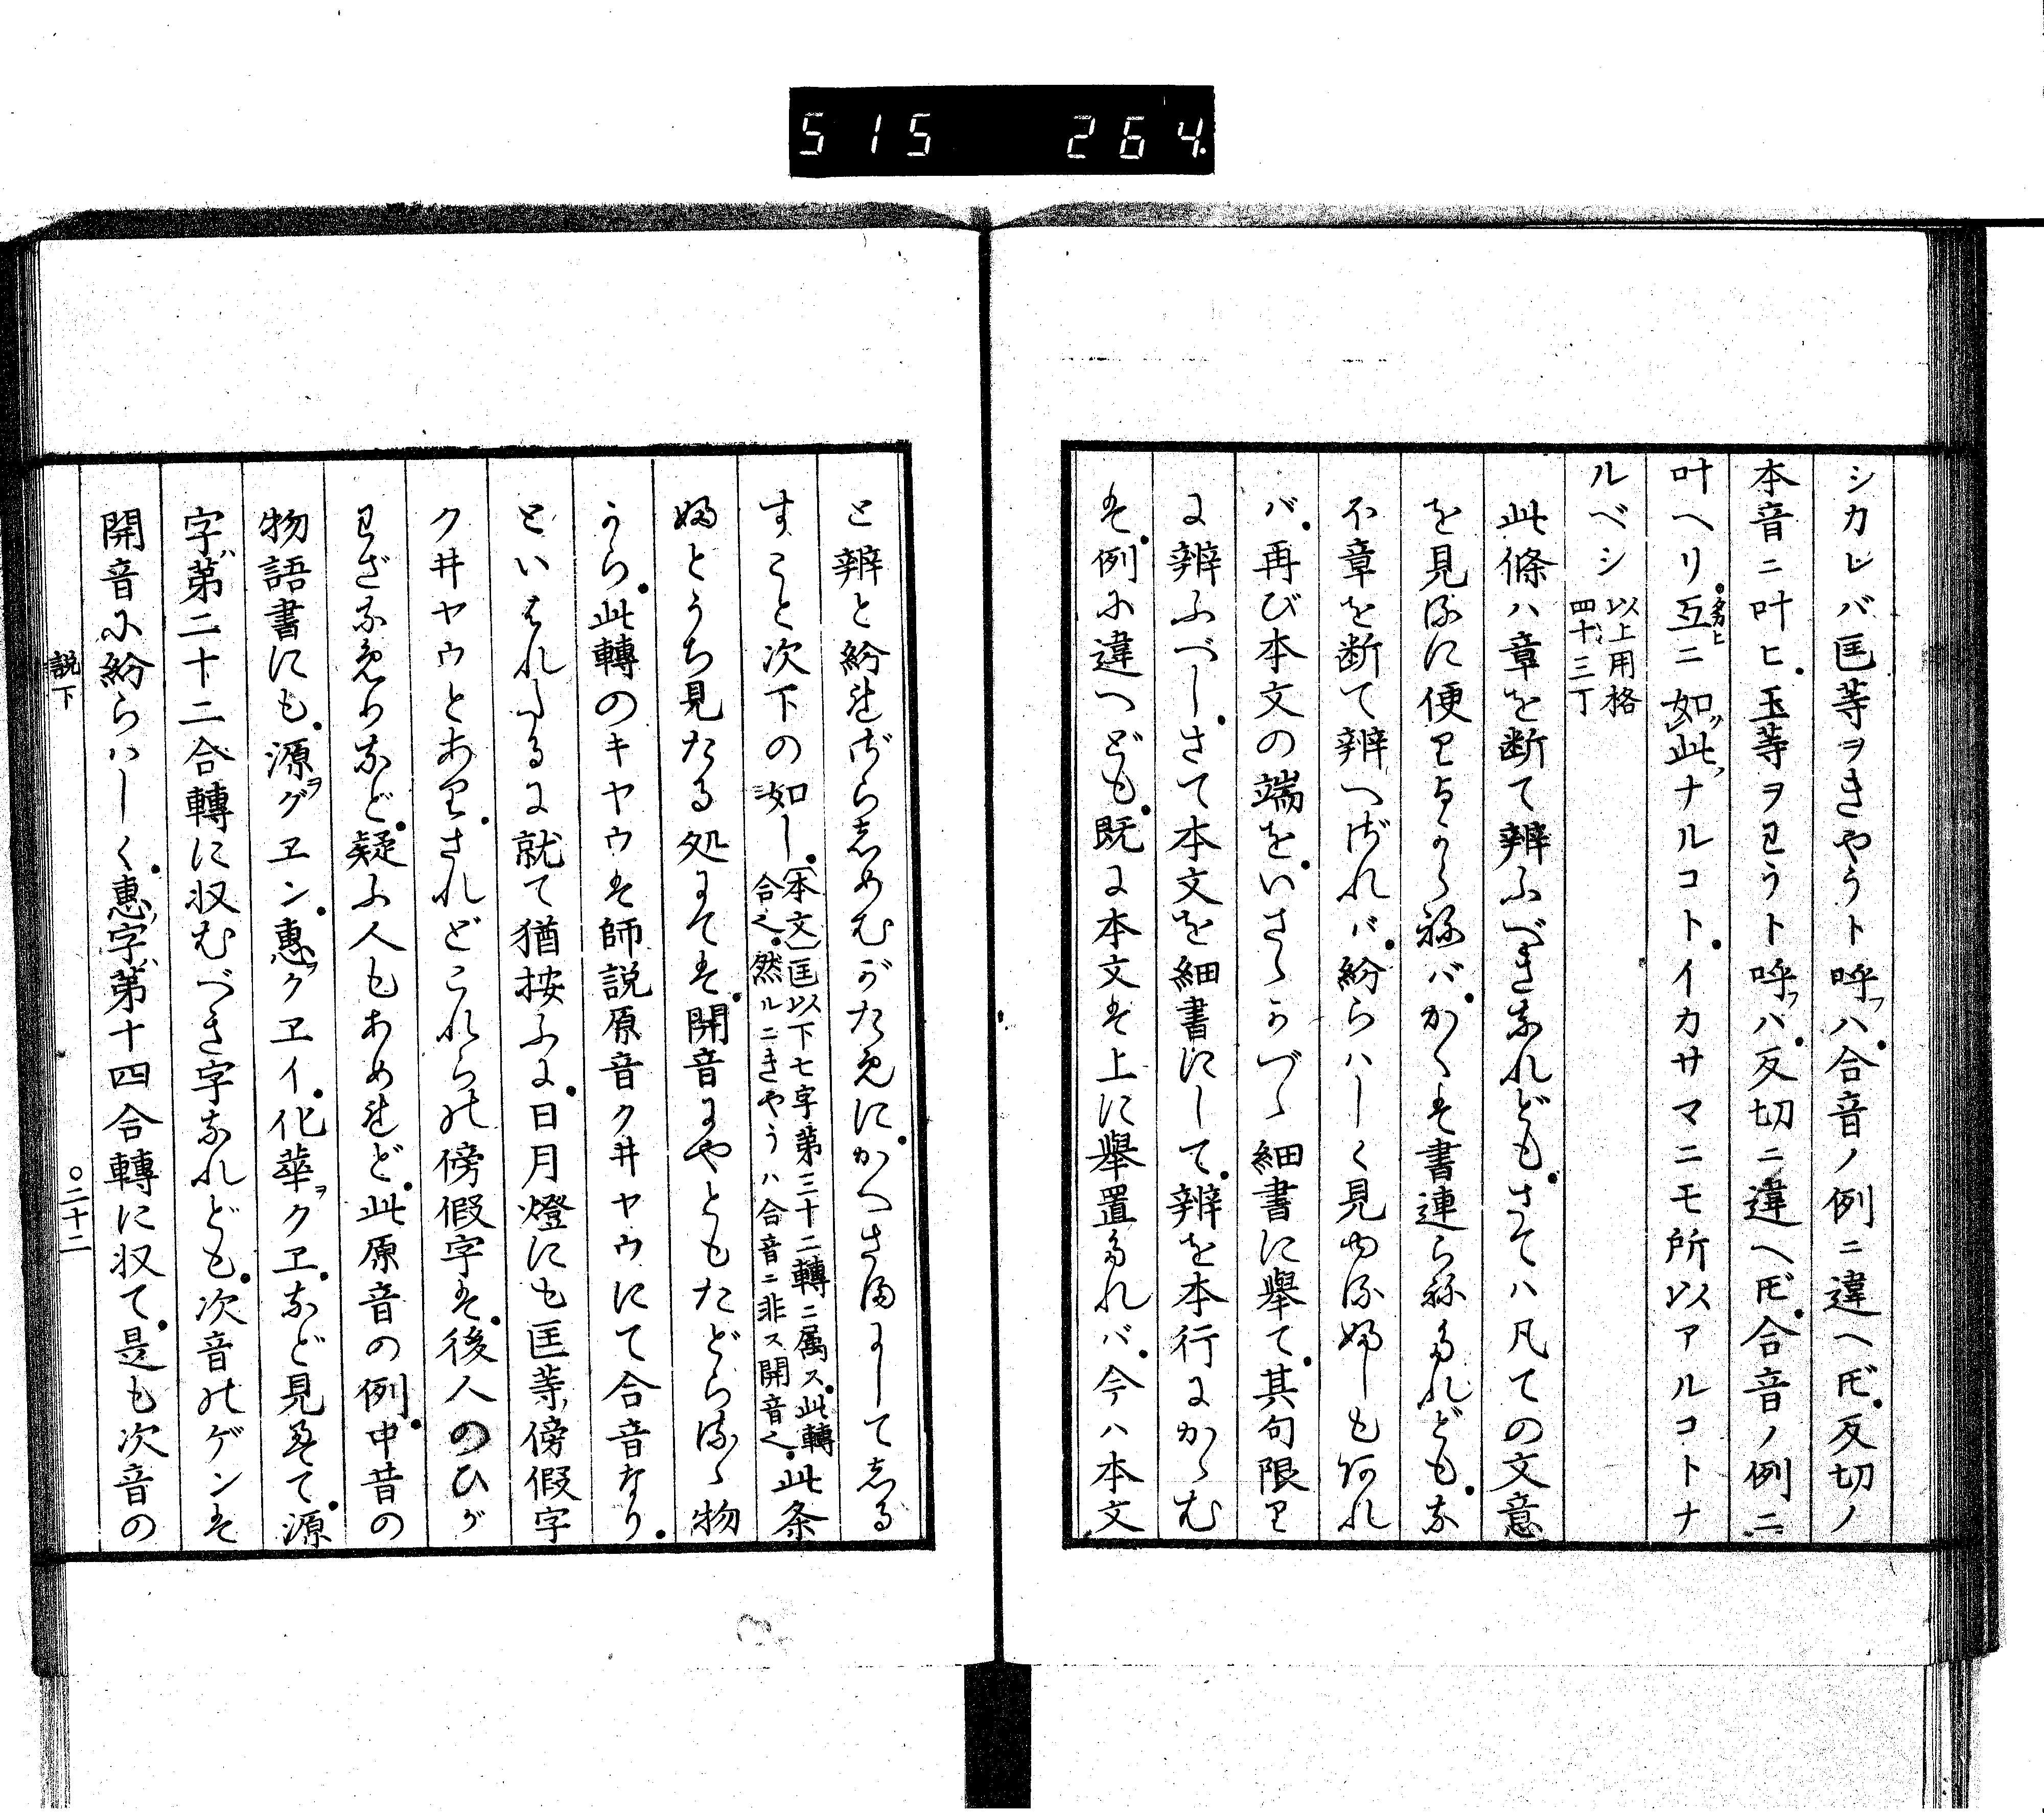 515 264
シカレバ匡等ヲきやうト呼フハ合音ノ例ニ違ヘ𪜈反切ノ
本音ニ叶ヒ玉等ヲわうト呼フハ反切ニ違ヘ𪜈合音ノ例ニ
叶ヘリ互ニ如此ナルコトイカサマニモ所以アルコトナ
ルベシ以上用格
四十三丁
此條ハ章を断て辨ふべきなれどもさてハ凡ての文意
を見るに便りよからねバかくは書連らねたれどもな
不章を断て辨へざれバ紛らハしく見ゆる婦しもあれ
バ再び本文の端をいさゝかづゝ細書に擧て其句限り
に辨ふべしさて本文を細書にして辨を本行にかゝむ
は例に違へども既に本文は上に擧置たれバ今ハ本文
と辨と紛れざらしめむがためにかへさまにしてしる
すこと次下の如し(本文)匡以下七字第三十二轉ニ属ス此轉
合之然ルニきやうハ合音ニ非ス開音之此条
婦とうち見たる処にては開音にやともたどらるゝ物
から此轉のキヤウは師説原音クヰヤウにて合音なり
といはれたるに就て猶按ふに日月燈にも匡等傍假字
クヰヤウとありされどこれらの傍假字は後人のひが
わざなめりなど疑ふ人もあめれど此原音の例中昔の
物語書にも源ヲグヱン惠ヲクヱイ化華ヲクヱなど見えて源
字ハ第二十二合轉に収むべき字なれども次音のゲンは
開音に紛らハしく惠字ハ第十四合轉に収て是も次音の
説下
〇二十二